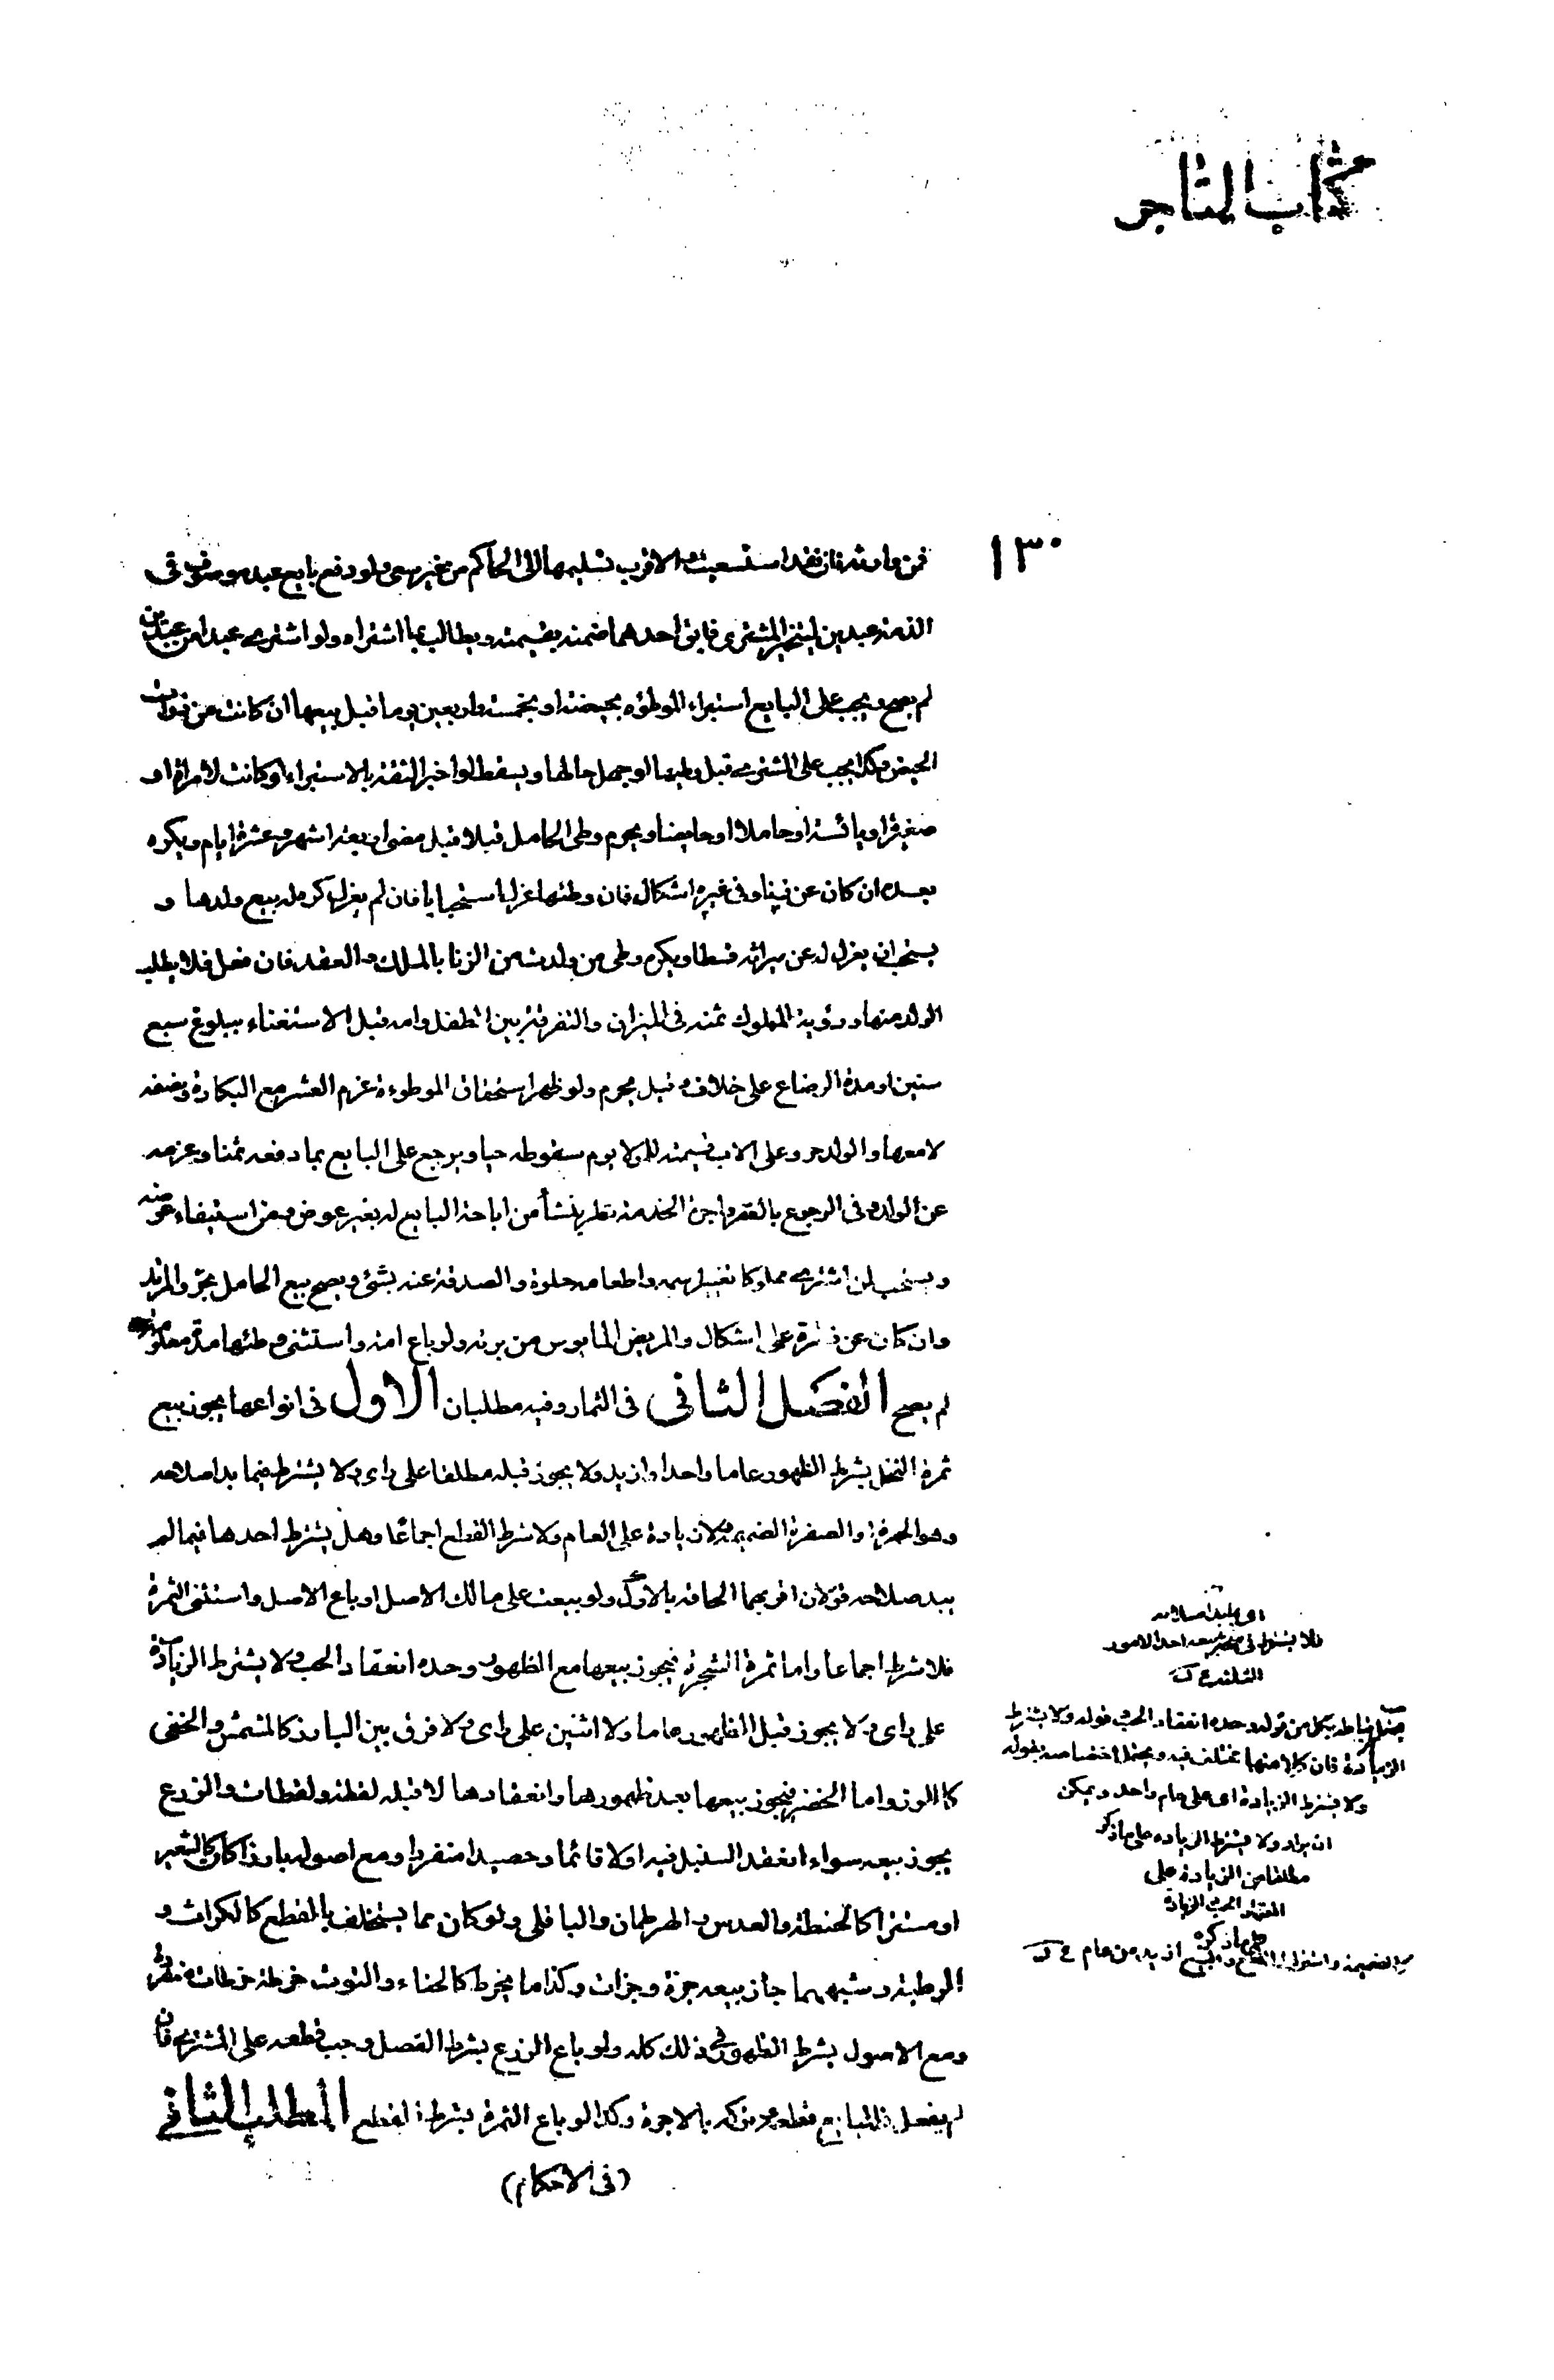 كتاب المتاجر
١٣٠
فمن وارثه فان فقد استسعيت والاقرب تسليمها الى الحاكم من غير سعى ولو دفع بايع عبد موصوف فى
الذمة عبدين ليتخير المشترى فابق احدهما ضمنه بقيمته ويطالب بما اشتراه ولو اشترى عبدا من عبدين
لم يصح ويجب على البايع استبراء الموطوءه بحيضة او بخمسة واربعين يوما قبل بيعها ان كانت من ذوات
الحيض وكذا يجب على المشترى قبل وطيها لو جهل حالها ويسقط لو اخبر الثقة بالاستبراء او كانت لامرأة او
صغيرة او يائسة او حاملا او حايضا ويحرم وطى الحامل قبلا قبل مضى اربعة اشهر وعشرة ايام ويكره
بعده ان كان عن زنا وفى غيره اشكال فان وطئها عزل استحبابا فان لم يعزل كره له بيع ولدها و
يستحب ان يعزل له عن ميراثه قسطا ويكره وطى من ولدت من الزنا بالملك والعقد فان فعل فلا يطلب
الولد منها ورؤية المملوك ثمنه فى الميزان والتفرقة بين الطفل وامه قبل الاستغناء ببلوغ سبع
سنين او مدة الرضاع على خلاف وقيل يحرم ولو ظهر استحقاق الموطوءة غرم العشر مع البكارة ونصفه
لا معها والولد حر وعلى الاب قيمته للمولا يوم سقوطه حيا ويرجع على البايع بما دفعه ثمنا وغرمه
عن الولد وفى الرجوع بالعقر واجرة الخدمة نظر ينشأ من اباحة البايع له بغير عوض ومن استيفاء عوضه
ويستحب لمن اشترى مملوكا تغيير اسمه واطعامه حلوة والصدقة عنه بشئ ويصح بيع الحامل بحر والمرتد
وان كان عن فطرة على اشكال والمريض المايوس من برئه ولو باع امة واستثنى وطئها مدة معلومة
لم يصح الفصل الثانى فى الثمار وفيه مطلبان الاول فى انواعها يجوز بيع
ثمرة النخل بشرط الظهور عاما واحدا وازيد ولا يجوز قبله مطلقا على راى ولا يشترط فيما بدا صلاحه
وهو الحمرة او الصفرة الضميمة ولا زيادة على العام ولا شرط القطع اجماعا وهل يشترط احدها فيما لم
يبد صلاحه قولان اقربهما الحاقه بالاول ولو بيعت على مالك الاصل او باع الاصل واستثنى الثمرة
فلا شرط اجماعا واما ثمرة الشجرة فيجوز بيعها مع الظهور وحده انعقاد الحب ولا يشترط الزيادة
على راى ولا يجوز قبل الظهور عاما ولا اثنين على راى ولا فرق بين البارز كالمشمش والخفى
كاللوز واما الخضر فيجوز بيعها بعد ظهورها وانعقادها لا قبله لقطة ولقطات والزرع
يجوز بيعه سواء انعقد السنبل فيه او لا قائما وحصيدا منفردا ومع اصوله بارزا كان كالشعير
او مستترا كالحنطة والعدس والهرطمان والباقلى ولو كان مما يستخلف بالقطع كالكراث و
الرطبة وشبههما جاز بيعه جزة وجزات وكذا ما يخرط كالحناء والتوت خرطة وخرطات منفردة
ومع الاصول بشرط الظهور فى ذلك كله ولو باع الزرع بشرط القصل وجب قطعه على المشترى فان
لم يفعل فللبايع قطعه وتركه بالاجرة وكذا لو باع الثمرة بشرط القطع المطلب الثانى
(فى الاحكام)
فلا يشترط فى بيعه احد الامور
الثلثة
ولا يشترط الزيادة اى على عام واحد ويمكن
ان يراد ولا يشترط الزيادة على ما ذكر
مطلقا من الزيادة على
على ما ذكره